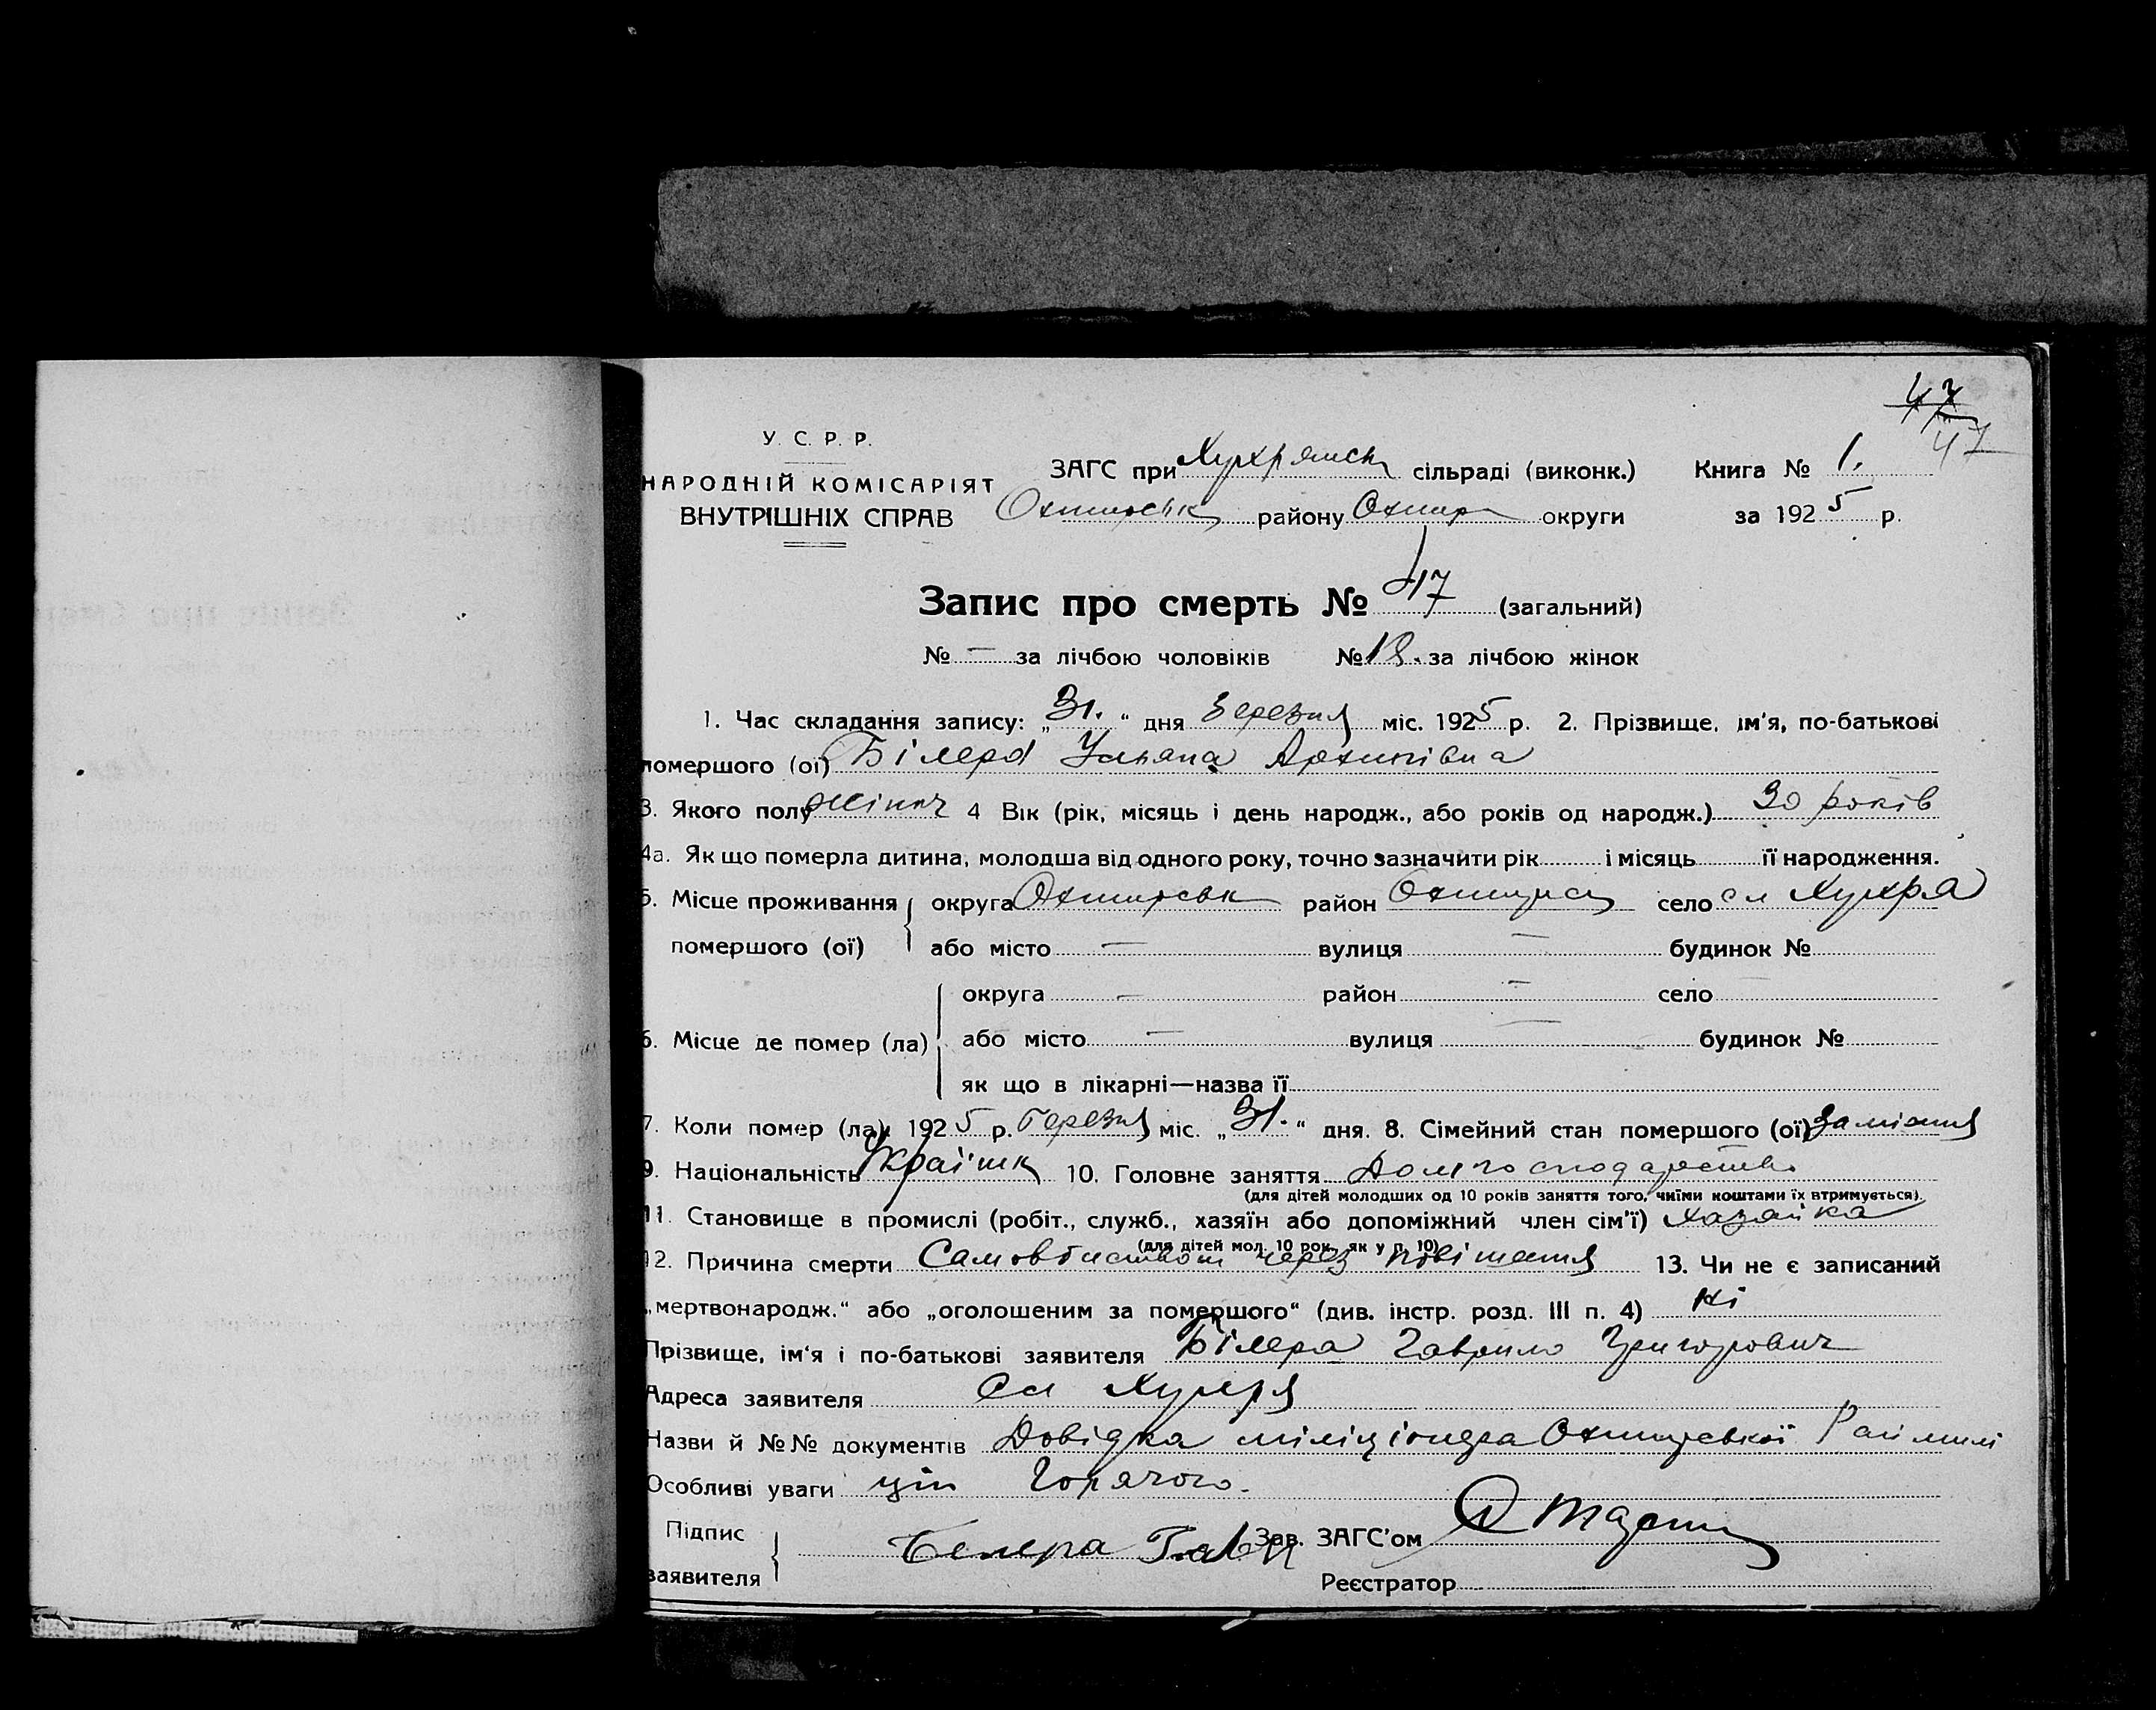 47
47
У. С. Р. Р.
НАРОДНІЙ КОМІСАРІЯТ
ВНУТРІШНІХ СПРАВ
ЗАГС при Хухрянск сільраді (виконк.) Книга № 1.
Охтирськ району Охтир округи за 1925 р.
Запис про смерть № 47 (загальний)
№ — за лічбою чоловіків № 18. за лічбою жінок
1. Час складання запису: „31.“ дня Березня міс. 1925 р. 2. Прізвище, ім'я, по-батькові
помершого (ої) Білера Уляна Архипівна
3. Якого полу жіноч 4 Вік (рік, місяць і день народж., або років од народж.) 30 років
4а. Як що померла дитина, молодша від одного року, точно зазначити рік і місяць її народження.
5. Місце проживання округа Охтирськ район Охтирськ село сл Хухра
помершого (ої) або місто — вулиця — будинок №
округа — район — село
6. Місце де помер (ла) або місто — вулиця — будинок №
як що в лікарні—назва її
7. Коли помер (ла) 1925 р. Березня міс. „31.“ дня. 8. Сімейний стан помершого (ої) Заміжня
9. Національність Україн 10. Головне заняття Домгосподарство
(для дітей молодших од 10 років заняття того, чиїми коштами їх втримується).
11. Становище в промислі (робіт., служб., хазяїн або допоміжний член сім'ї) хазяйка
(для дітей мол. 10 рок., як у п. 10)
12. Причина смерти Самовбиством через повішення 13. Чи не є записаний
„мертвонародж.“ або „оголошеним за помершого“ (див. інстр. розд. III п. 4) Ні
Прізвище, ім'я і по-батькові заявителя Білера Гаврило Григорович
Адреса заявителя Сл Хухря
Назви й №№ документів Довідка міліціонера Охтирської Раймілі
Особливі уваги ції Горячого.
Підпис
заявителя Белера Гавр Зав. ЗАГС'ом
Реєстратор